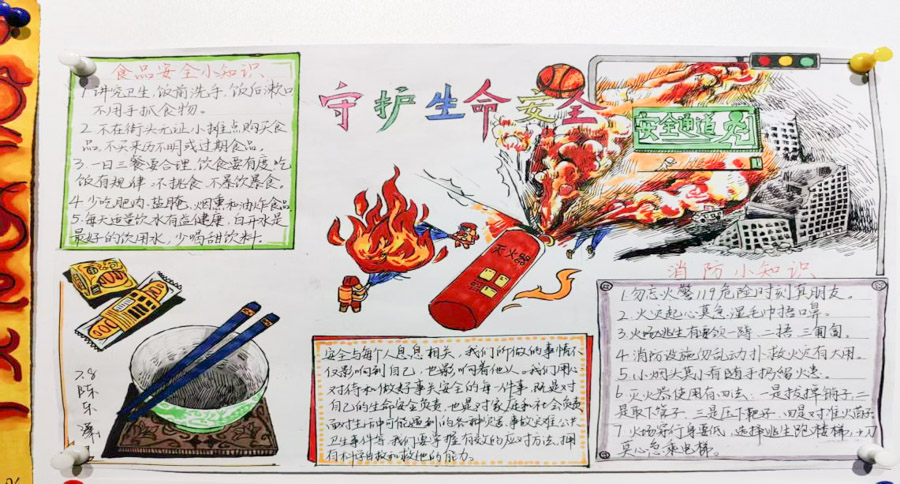 守护生命安全
食品安全小知识
1.讲究卫生,饭前洗手,饭后漱口
不用手抓食物。
2.不在街头无证小摊点购买食
品,不买来历不明或过期食品。
3.一日三餐要合理,饮食要有度,吃
饭有规律,不挑食、不暴饮暴食。
4.少吃肥肉、盐腌、烟熏和油炸食品
5.每天适量饮水有益健康,白开水是
最好的饮用水,少喝甜饮料.
安全通道
灭火器
7.8
陈
乐
安全与每个人息息相关,我们所做的事情不
仅影响到自己,也影响着他人。我们用心
对待和做好事关安全的每一件事,既是对
自己的生命安全负责,也是对家庭和社会负责
面对生活中可能遇到的各种灾害,事故灾难,公共
卫生事件等,我们要掌握有效的应对方法,拥
有科学自救和救他的能力。
消防小知识
1.勿忘火警119危险时刻真朋友。
2.火灾起心莫急湿毛巾捂口鼻。
3.火场逃生有要领一蹲二捂三匍匐。
4.消防设施勿乱动扑救火灾有大用。
5.小烟头莫小看随手扔留火患。
6.灭火器使用有四法:一是拔掉销子二
是取下管子三是压下靶子四是对准火苗子
7.火场穿行身要低,选择逃生跑楼梯,
莫心急乘电梯。